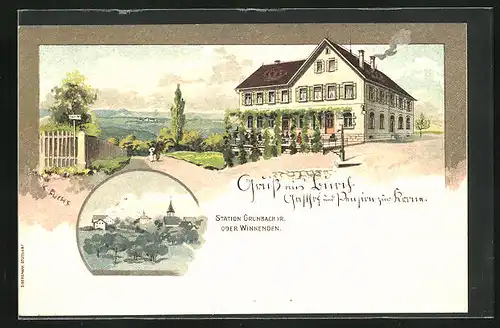 Gruß aus Buoch.
Gasthof und Pension zur Krone.
STATION GRUNBACH I/R.
ODER WINNENDEN.